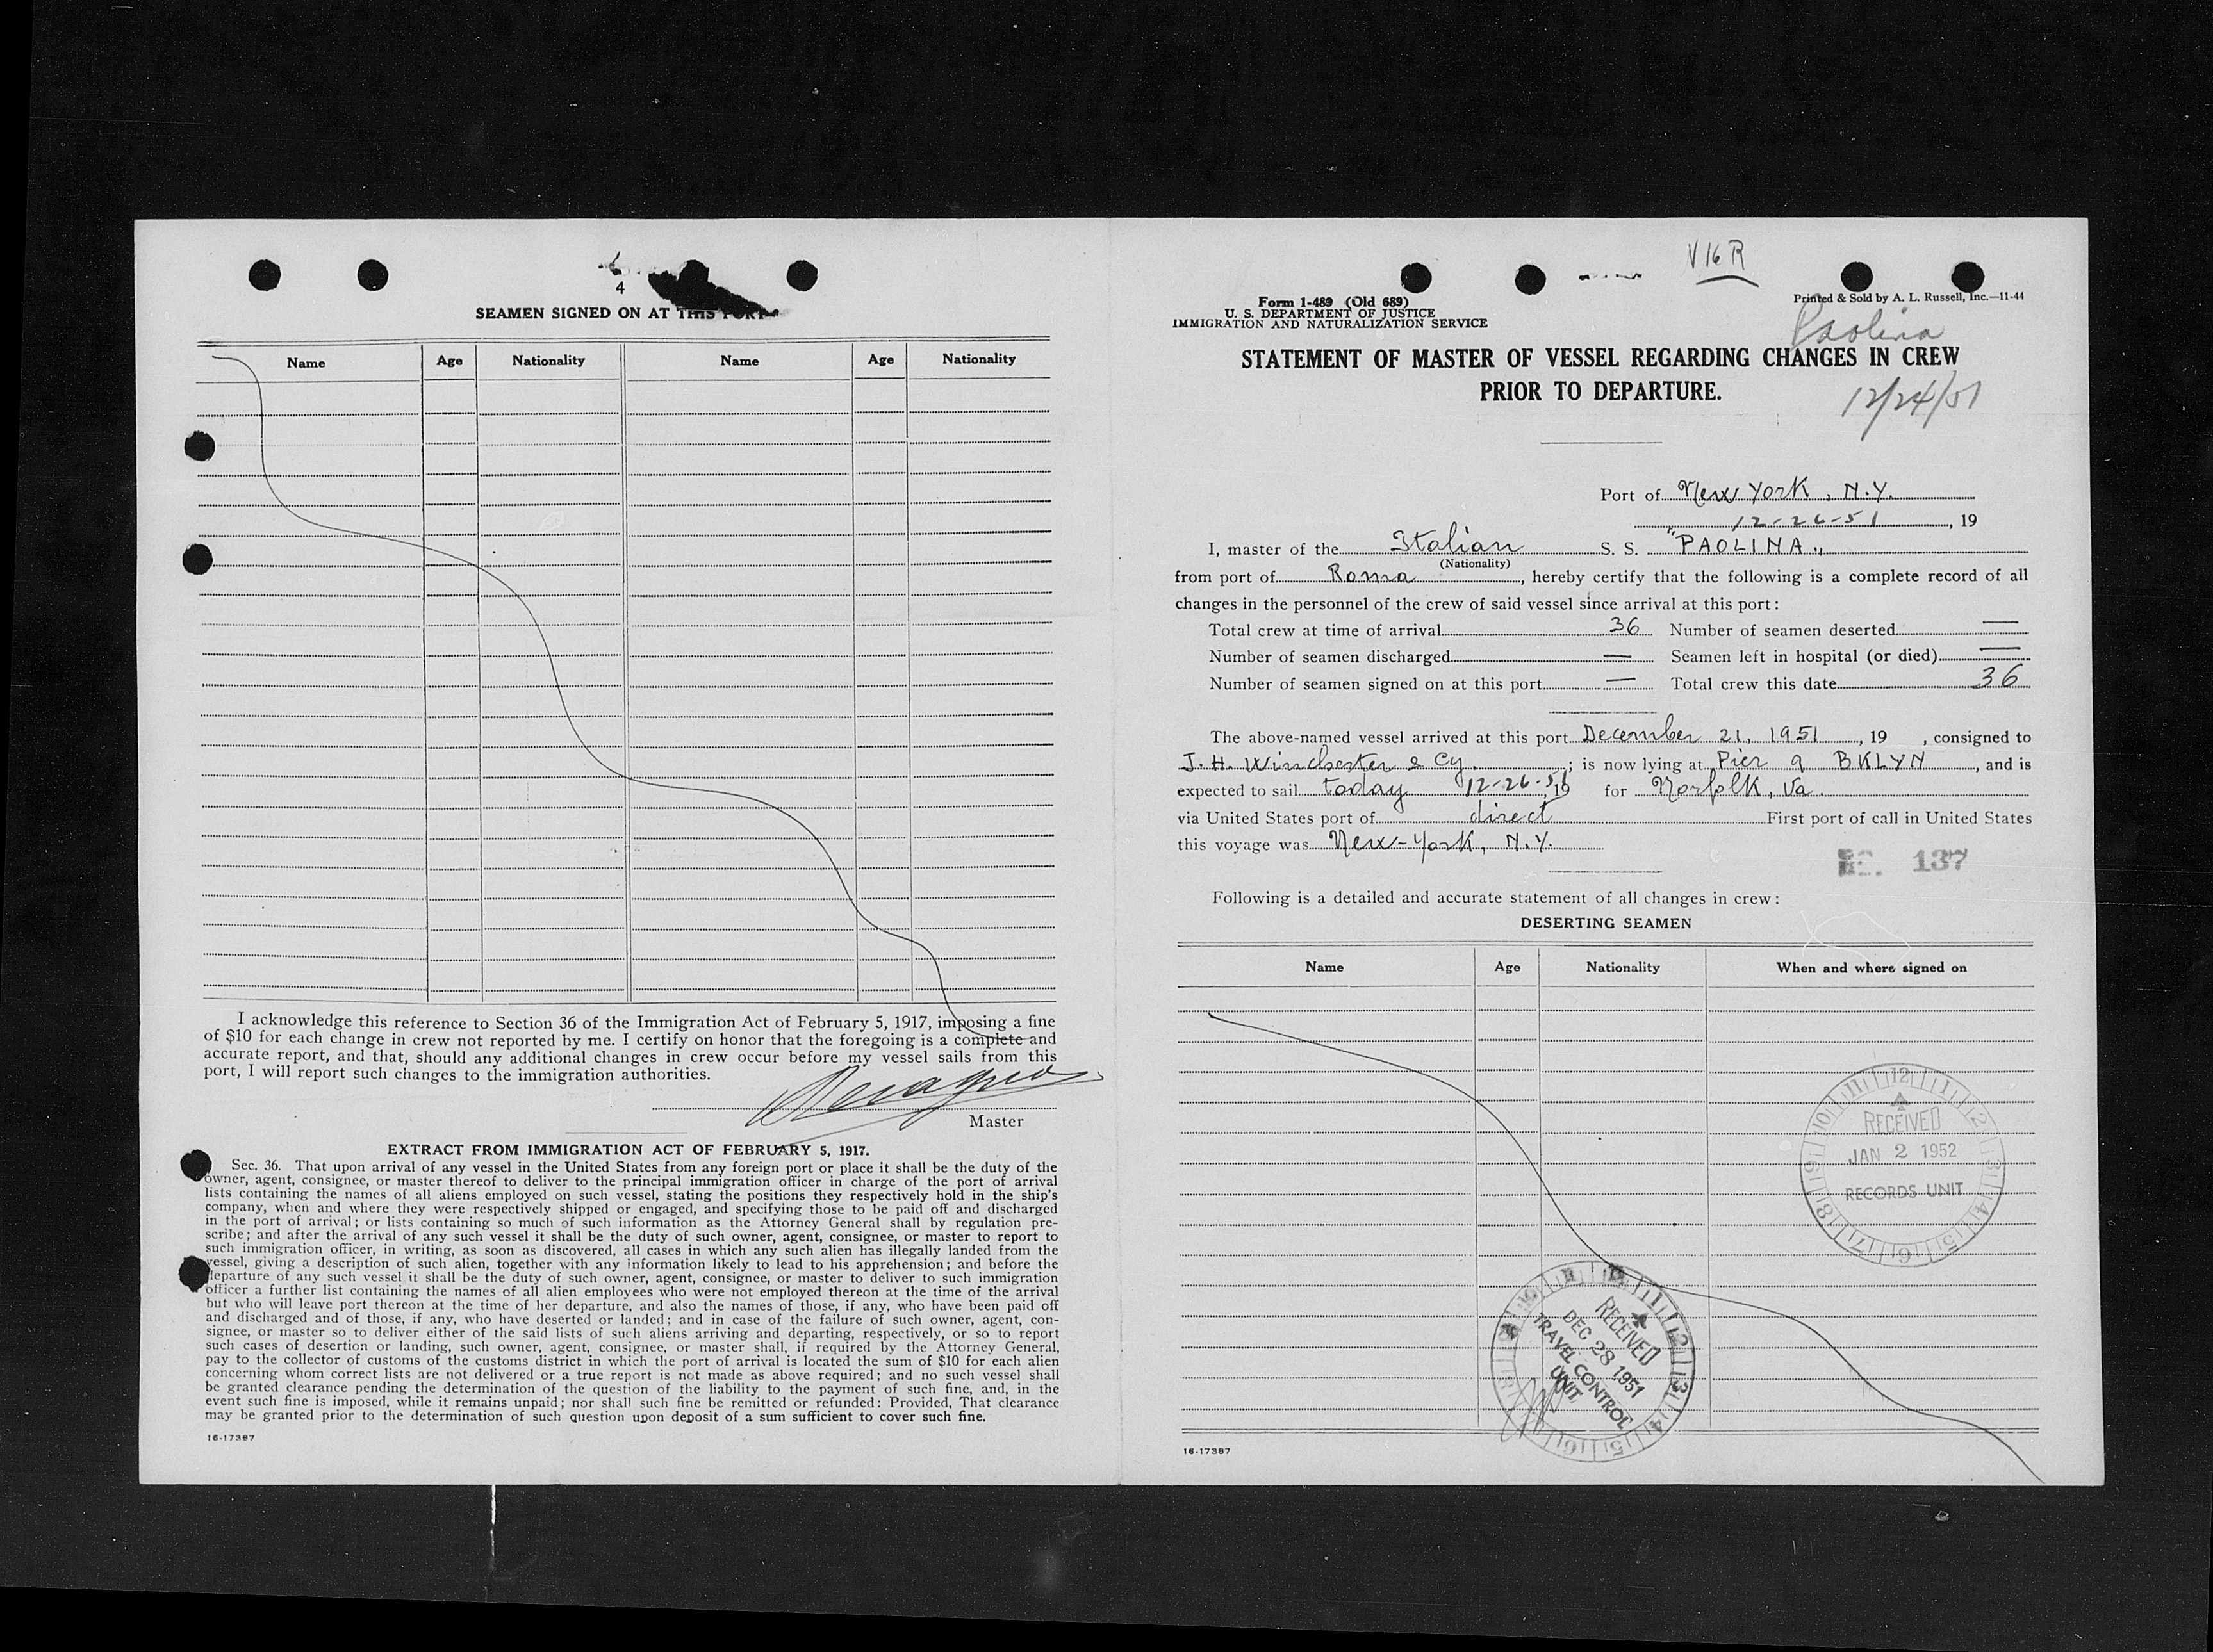 4
SEAMEN SIGNED ON AT THIS PORT
Name Age Nationality Name Age Nationality
I acknowledge this reference to Section 36 of the Immigration Act of February 5, 1917, imposing a fine
of $10 for each change in crew not reported by me. I certify on honor that the foregoing is a complete and
accurate report, and that, should any additional changes in crew occur before my vessel sails from this
port, I will report such changes to the immigration authorities.
Master
EXTRACT FROM IMMIGRATION ACT OF FEBRUARY 5, 1917.
Sec. 36. That upon arrival of any vessel in the United States from any foreign port or place it shall be the duty of the
owner, agent, consignee, or master thereof to deliver to the principal immigration officer in charge of the port of arrival
lists containing the names of all aliens employed on such vessel, stating the positions they respectively hold in the ship's
company, when and where they were respectively shipped or engaged, and specifying those to be paid off and discharged
in the port of arrival; or lists containing so much of such information as the Attorney General shall by regulation pre-
scribe; and after the arrival of any such vessel it shall be the duty of such owner, agent, consignee, or master to report to
such immigration officer, in writing, as soon as discovered, all cases in which any such alien has illegally landed from the
vessel, giving a description of such alien, together with any information likely to lead to his apprehension; and before the
departure of any such vessel it shall be the duty of such owner, agent, consignee, or master to deliver to such immigration
officer a further list containing the names of all alien employees who were not employed thereon at the time of the arrival
but who will leave port thereon at the time of her departure, and also the names of those, if any, who have been paid off
and discharged and of those, if any, who have deserted or landed; and in case of the failure of such owner, agent, con-
signee, or master so to deliver either of the said lists of such aliens arriving and departing, respectively, or so to report
such cases of desertion or landing, such owner, agent, consignee, or master shall, if required by the Attorney General,
pay to the collector of customs of the customs district in which the port of arrival is located the sum of $10 for each alien
concerning whom correct lists are not delivered or a true report is not made as above required; and no such vessel shall
be granted clearance pending the determination of the question of the liability to the payment of such fine, and, in the
event such fine is imposed, while it remains unpaid; nor shall such fine be remitted or refunded: Provided, That clearance
may be granted prior to the determination of such question upon deposit of a sum sufficient to cover such fine.
16-17387
V16R
Form 1-489 (Old 689)
U. S. DEPARTMENT OF JUSTICE
IMMIGRATION AND NATURALIZATION SERVICE
Printed & Sold by A. L. Russell, Inc.—11-44
Paolina
STATEMENT OF MASTER OF VESSEL REGARDING CHANGES IN CREW
PRIOR TO DEPARTURE.
12/24/51
Port of New York, N.Y.
12-26-51, 19
I, master of the Italian S. S. "PAOLINA"
(Nationality)
from port of Roma, hereby certify that the following is a complete record of all
changes in the personnel of the crew of said vessel since arrival at this port:
Total crew at time of arrival 36 Number of seamen deserted —
Number of seamen discharged — Seamen left in hospital (or died) —
Number of seamen signed on at this port — Total crew this date 36
The above-named vessel arrived at this port December 21, 1951, 19 , consigned to
J. H. Winchester & Cy.; is now lying at Pier 9 BKLYN, and is
expected to sail today 12-26-51 19 for Norfolk, Va.
via United States port of direct First port of call in United States
this voyage was New-York, N.Y.
137
Following is a detailed and accurate statement of all changes in crew:
DESERTING SEAMEN
Name Age Nationality When and where signed on
RECEIVED
JAN 2 1952
RECORDS UNIT
RECEIVED
DEC 28 1951
TRAVEL CONTROL
UNIT
16-17387